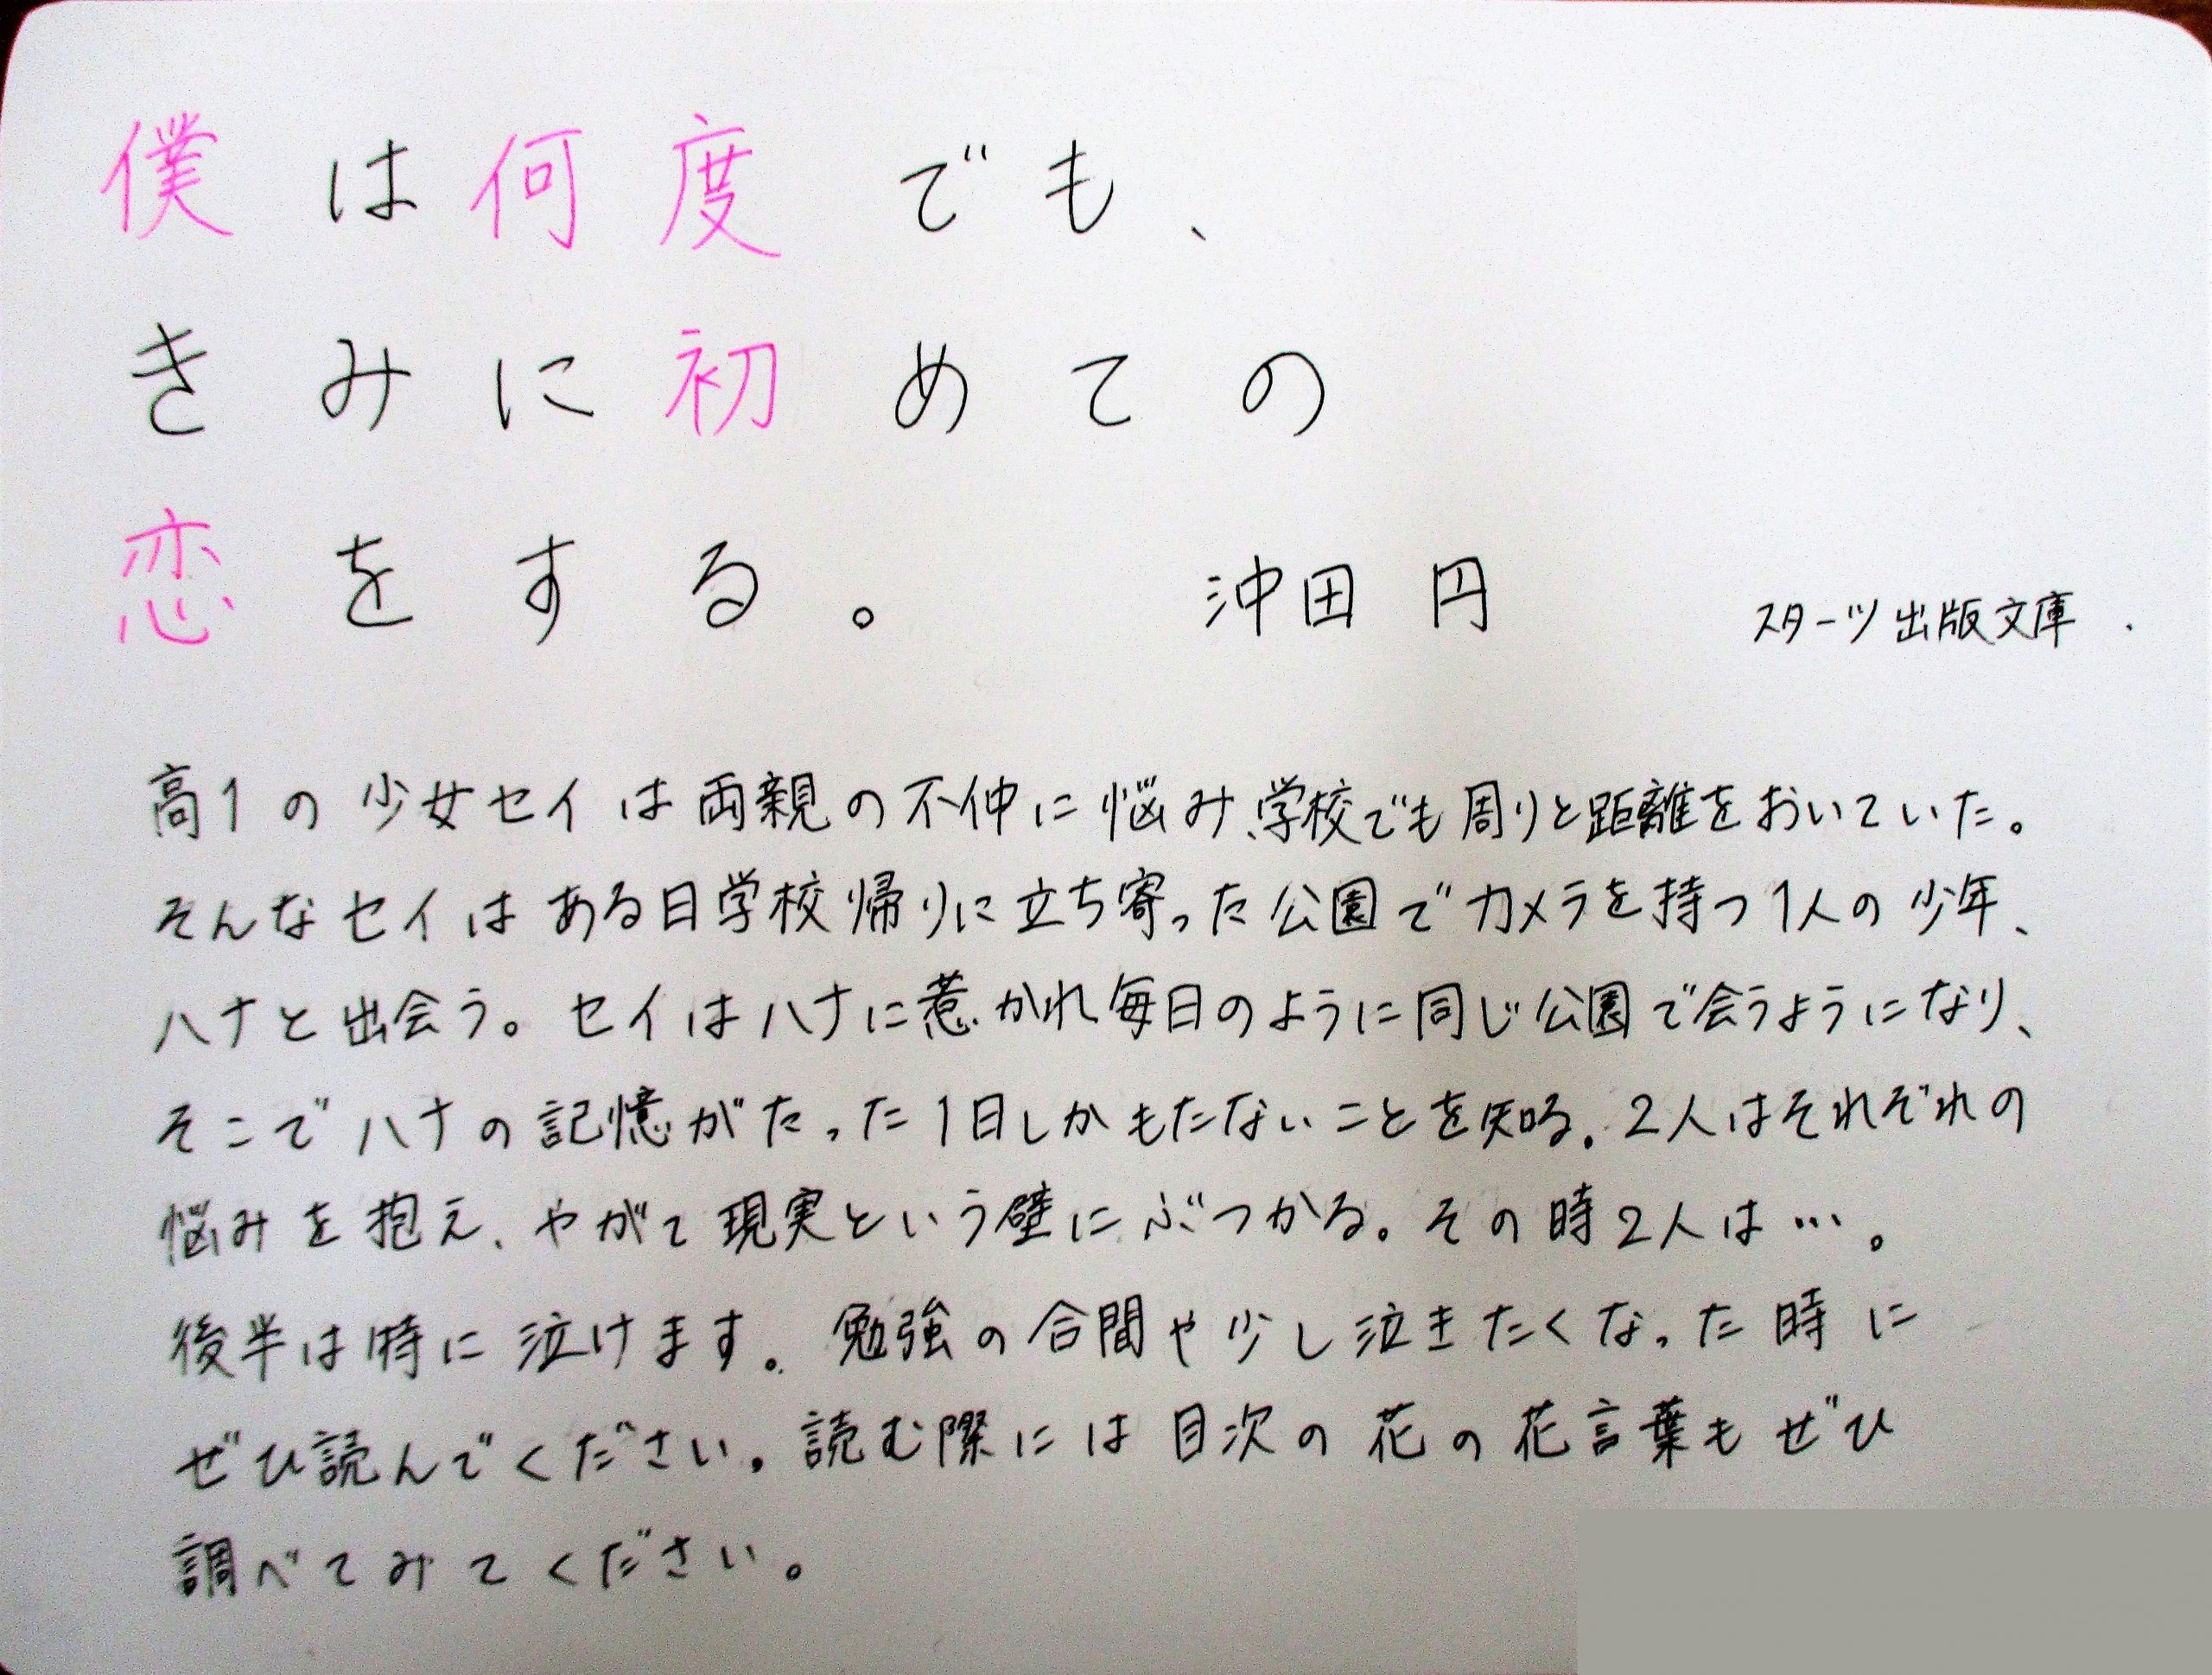 僕は何度でも、
きみに初めての
恋をする。 沖田 円 スターツ出版文庫.
高1の少女セイは両親の不仲に悩み、学校でも周りと距離をおいていた。
そんなセイはある日学校帰りに立ち寄った公園でカメラを持つ1人の少年、
ハナと出会う。セイはハナに惹かれ毎日のように同じ公園で会うようになり、
そこでハナの記憶がたった1日しかもたないことを知る。2人はそれぞれの
悩みを抱え、やがて現実という壁にぶつかる。その時2人は…。
後半は特に泣けます。勉強の合間や少し泣きたくなった時に
ぜひ読んでください。読む際には目次の花の花言葉もぜひ
調べてみてください。